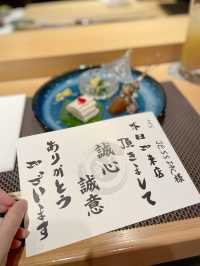 様
本日ご来店
頂きまして
誠心
誠意
ありがとう
ございます